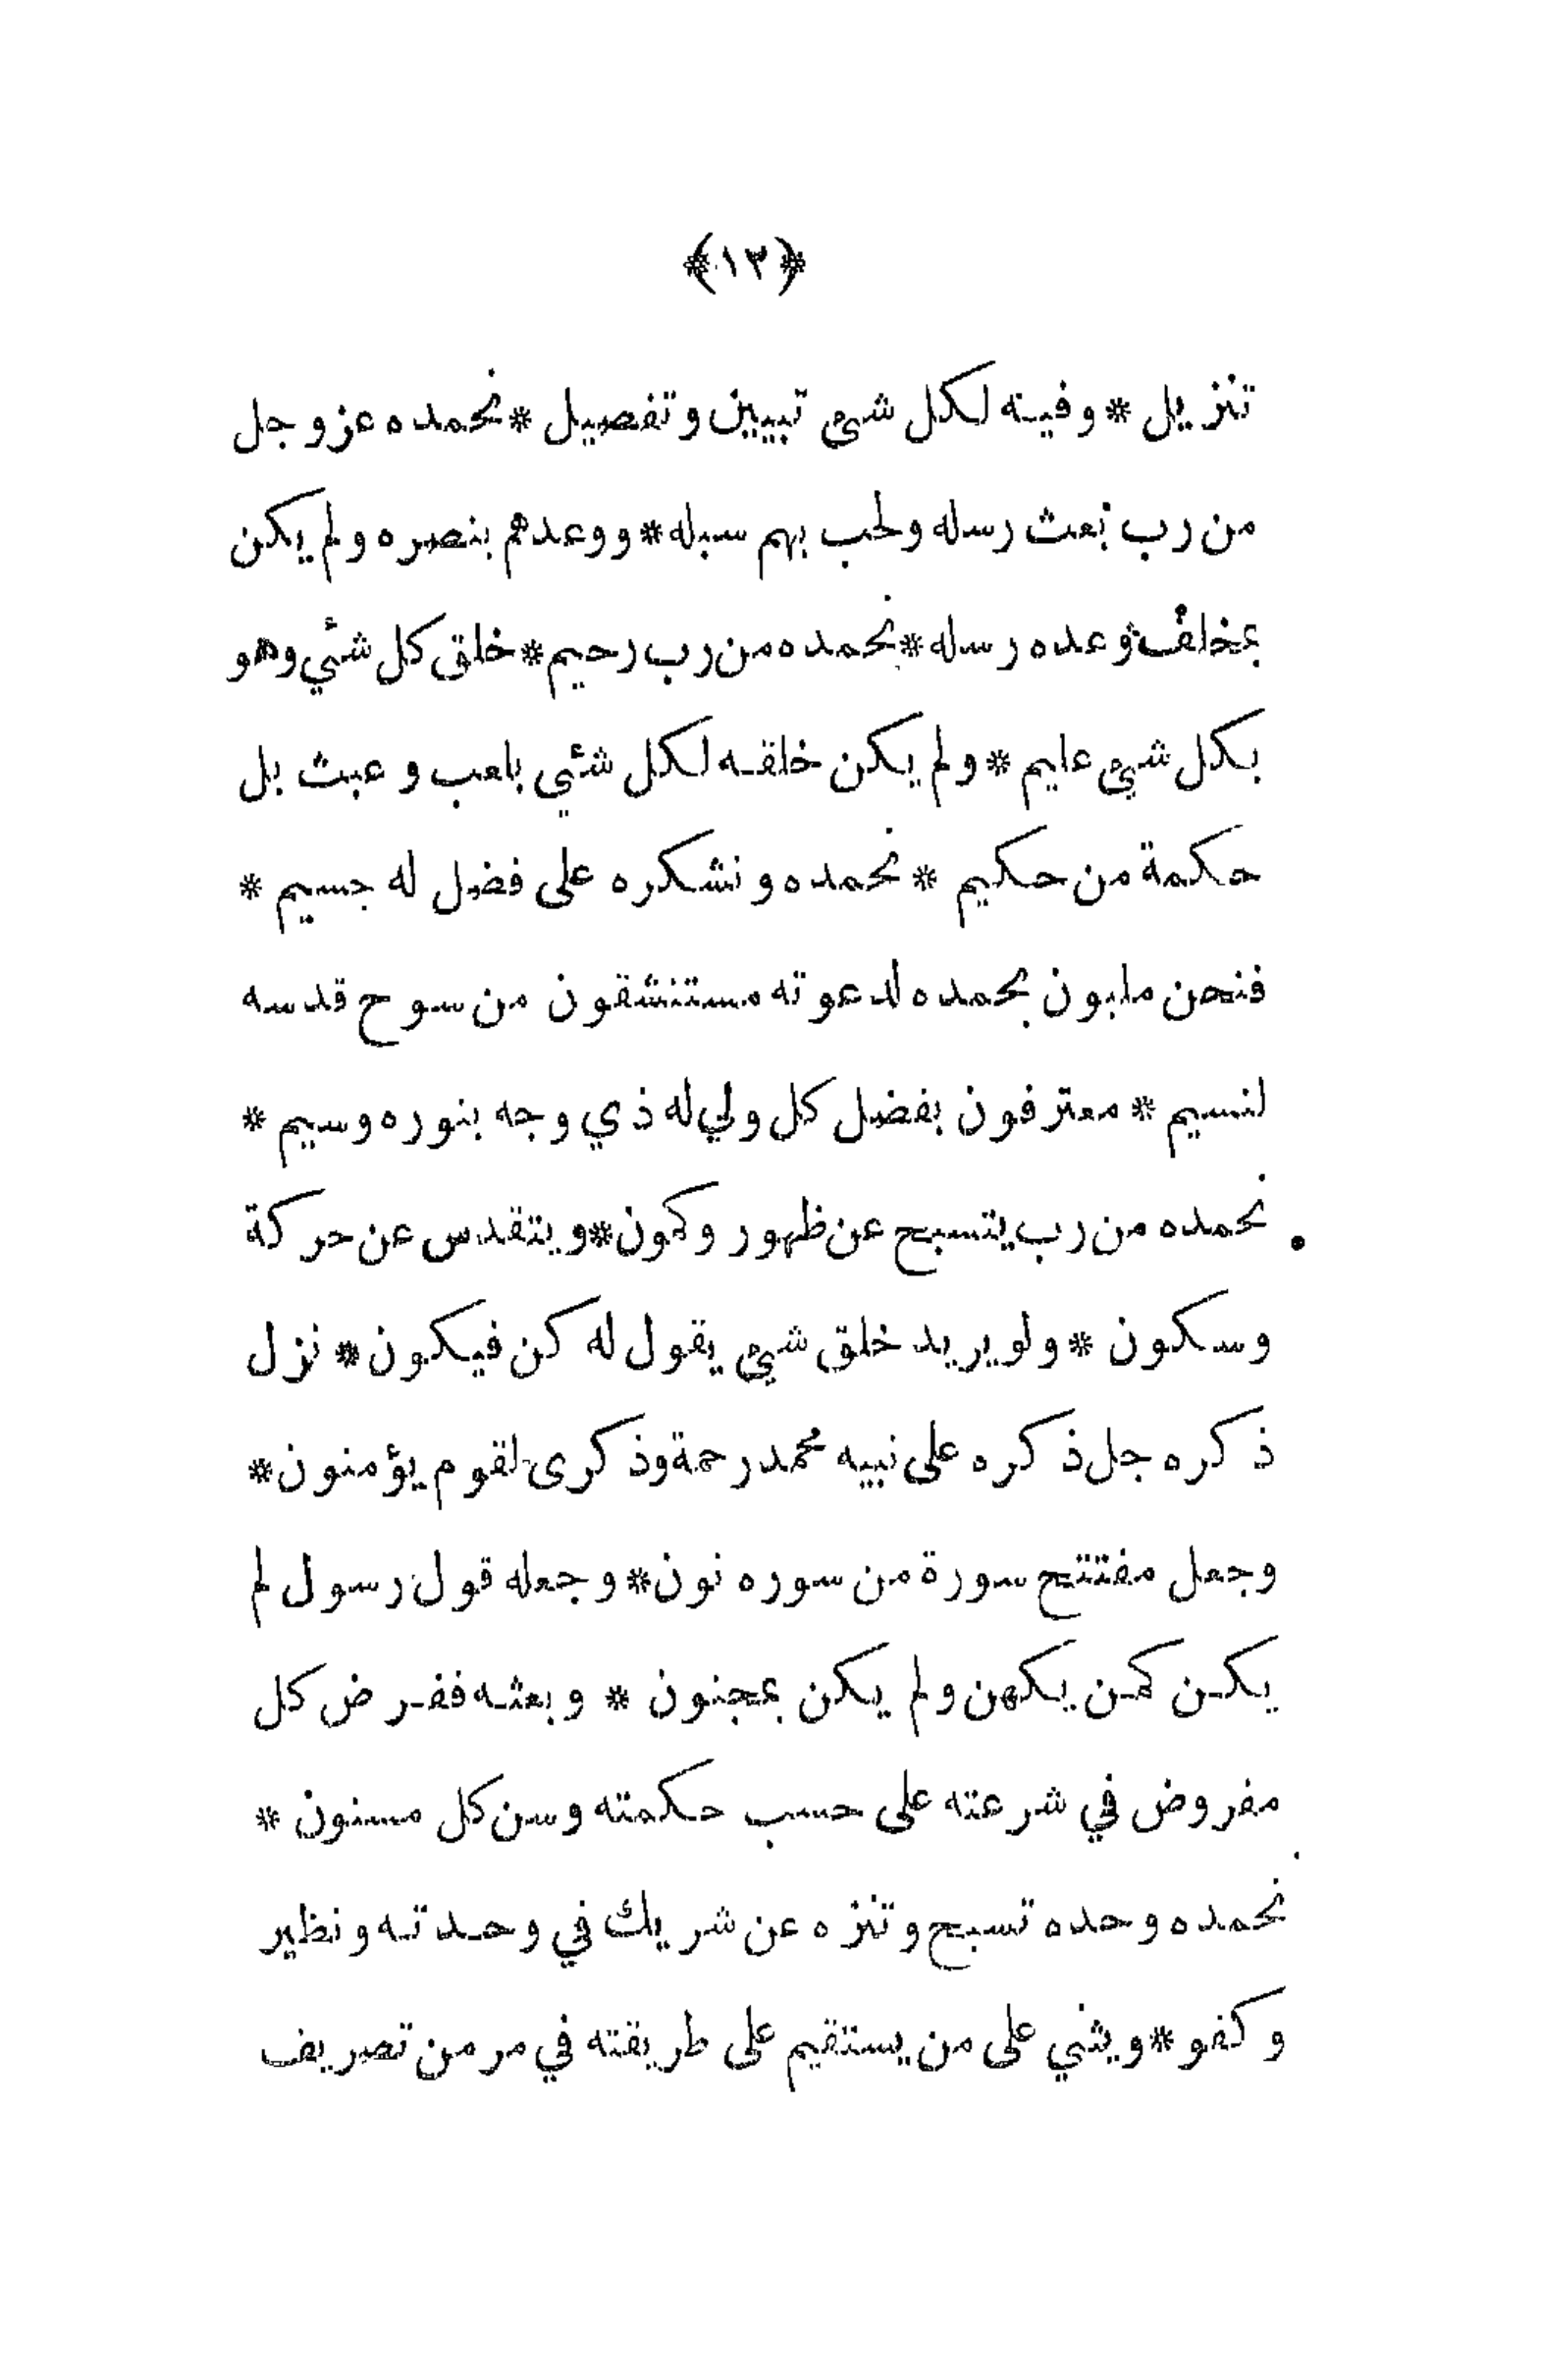 ﴿١٣﴾
تنزيل * وفيه لكل شئ تبيين وتفصيل * نحمده عز وجل
من رب بعث رسله ولحب بهم سبله * ووعدهم بنصره ولم يكن
بمخلف وعده رسله * نحمده من رب رحيم * خلق كل شئي وهو
بكل شيء عليم * ولم يكن خلقه لكل شئي بلعب وعبث بل
حكمة من حكيم * نحمده ونشكره على فضل له جسيم *
فنحن ملبون بحمده لدعوته مستنشقون من سوح قدسه
لنسيم * معترفون بفضل كل ولي له ذي وجه بنوره وسيم *
نحمده من رب يتسبح عن ظهور وكمون * ويتقدس عن حركة
وسكون * ولو يريد خلق شيء يقول له كن فيكون * نزل
ذكره جل ذكره على نبيه محمد رحمة وذكرى لقوم يؤمنون *
وجعل مفتتح سورة من سوره نون * وجعله قول رسول لم
يكن كمن يكهن ولم يكن بمجنون * وبعثه ففرض كل
مفروض في شرعته على حسب حكمته وسن كل مسنون *
نحمده وحده تسبح وتنزه عن شريك في وحدته ونظير
وكفو * ويثني على من يستقيم على طريقته في مر من تصريف